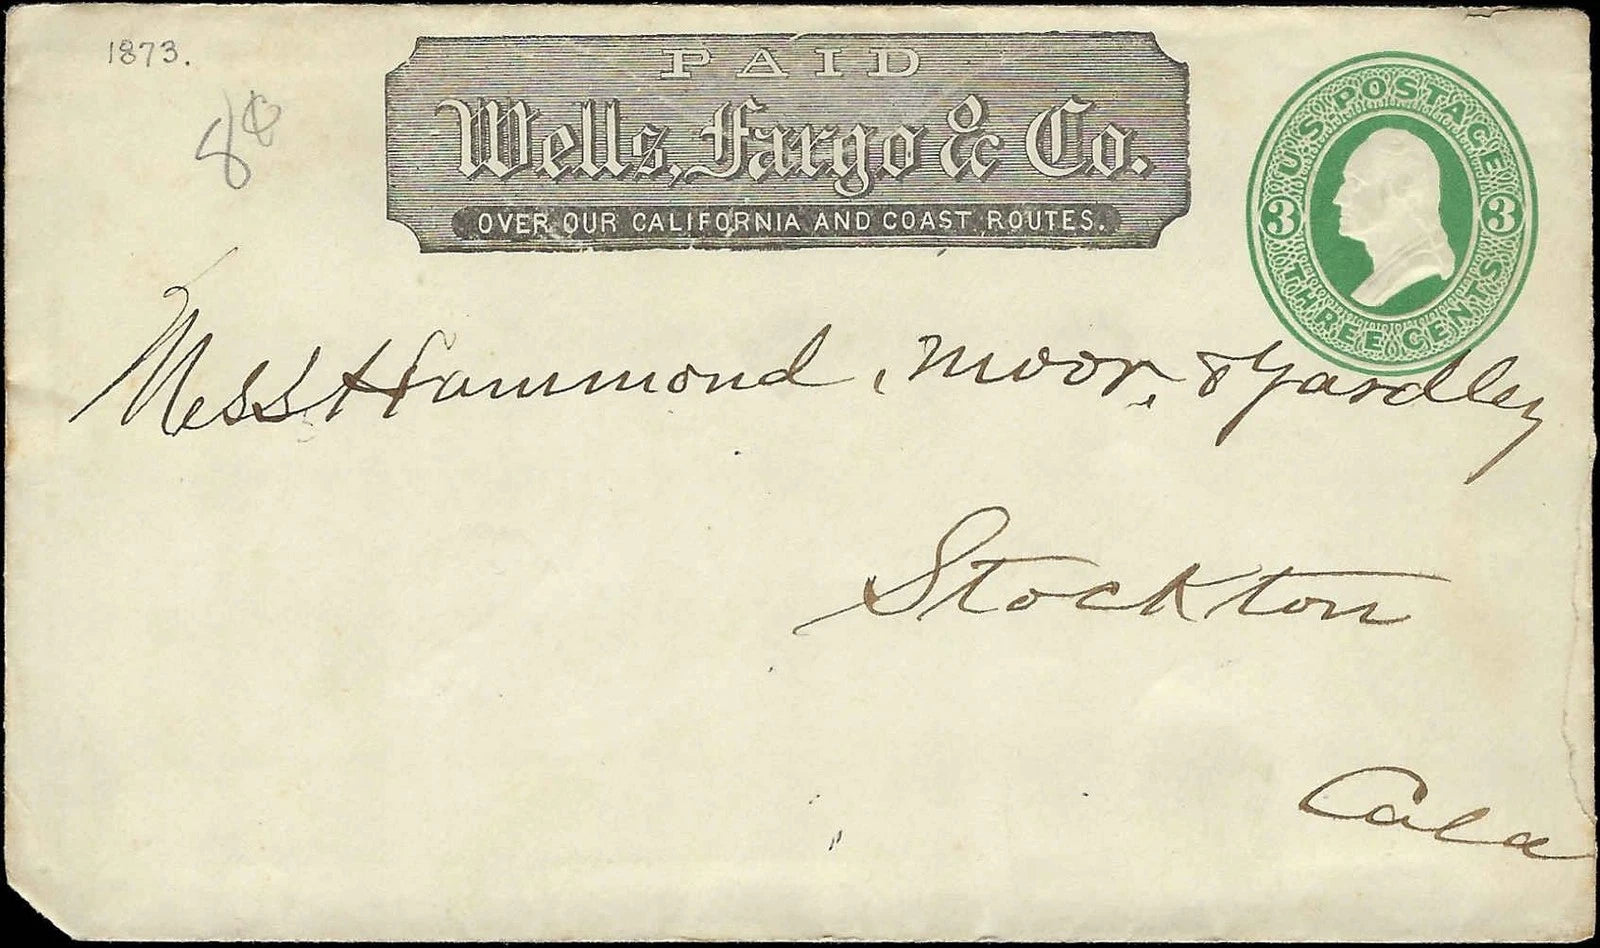 1873.
8¢
PAID
Wells, Fargo & Co.
OVER OUR CALIFORNIA AND COAST ROUTES.
U.S. POSTAGE
3 3
THREE CENTS
Mess Hammond, Moor, & Yardley
Stockton
Cala